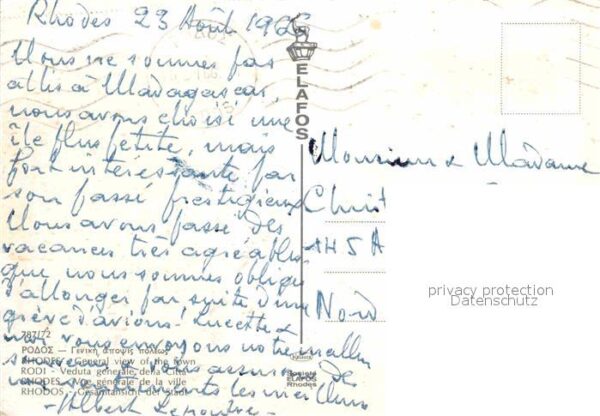 Rhodes 23 Août 19
Nous ne sommes pas
allés à Madagascar,
nous avons choisi une
île plus petite, mais
fort intéressante par
son passé prestigieux
Nous avons passé des
vacances très agréables
que nous sommes obligés
d'allonger par suite d'une
grève d'avions! Lucette &
moi vous envoyons notre meilleur
souvenir & vous assurons de
nos sentiments les meilleurs
Albert
ELAFOS
Monsieur & Madame
Christ
145 A
Nord
privacy protection
Datenschutz
787/72
ΡΟΔΟΣ — Γενική άποψις πόλεως
RHODES - General view of the town
RODI - Veduta generale della Città
RHODES - Vue générale de la ville
RHODOS - Gesamtansicht der Stadt
Société
ELAFOS
Rhodes